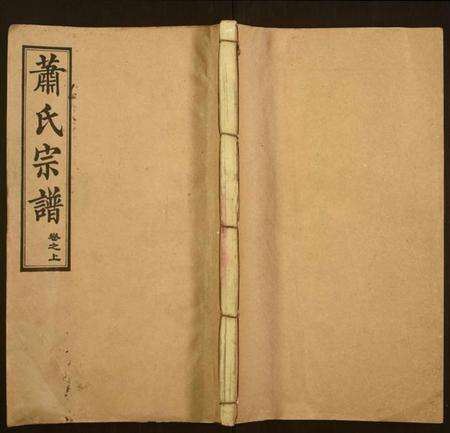 蕭氏宗譜
卷之上